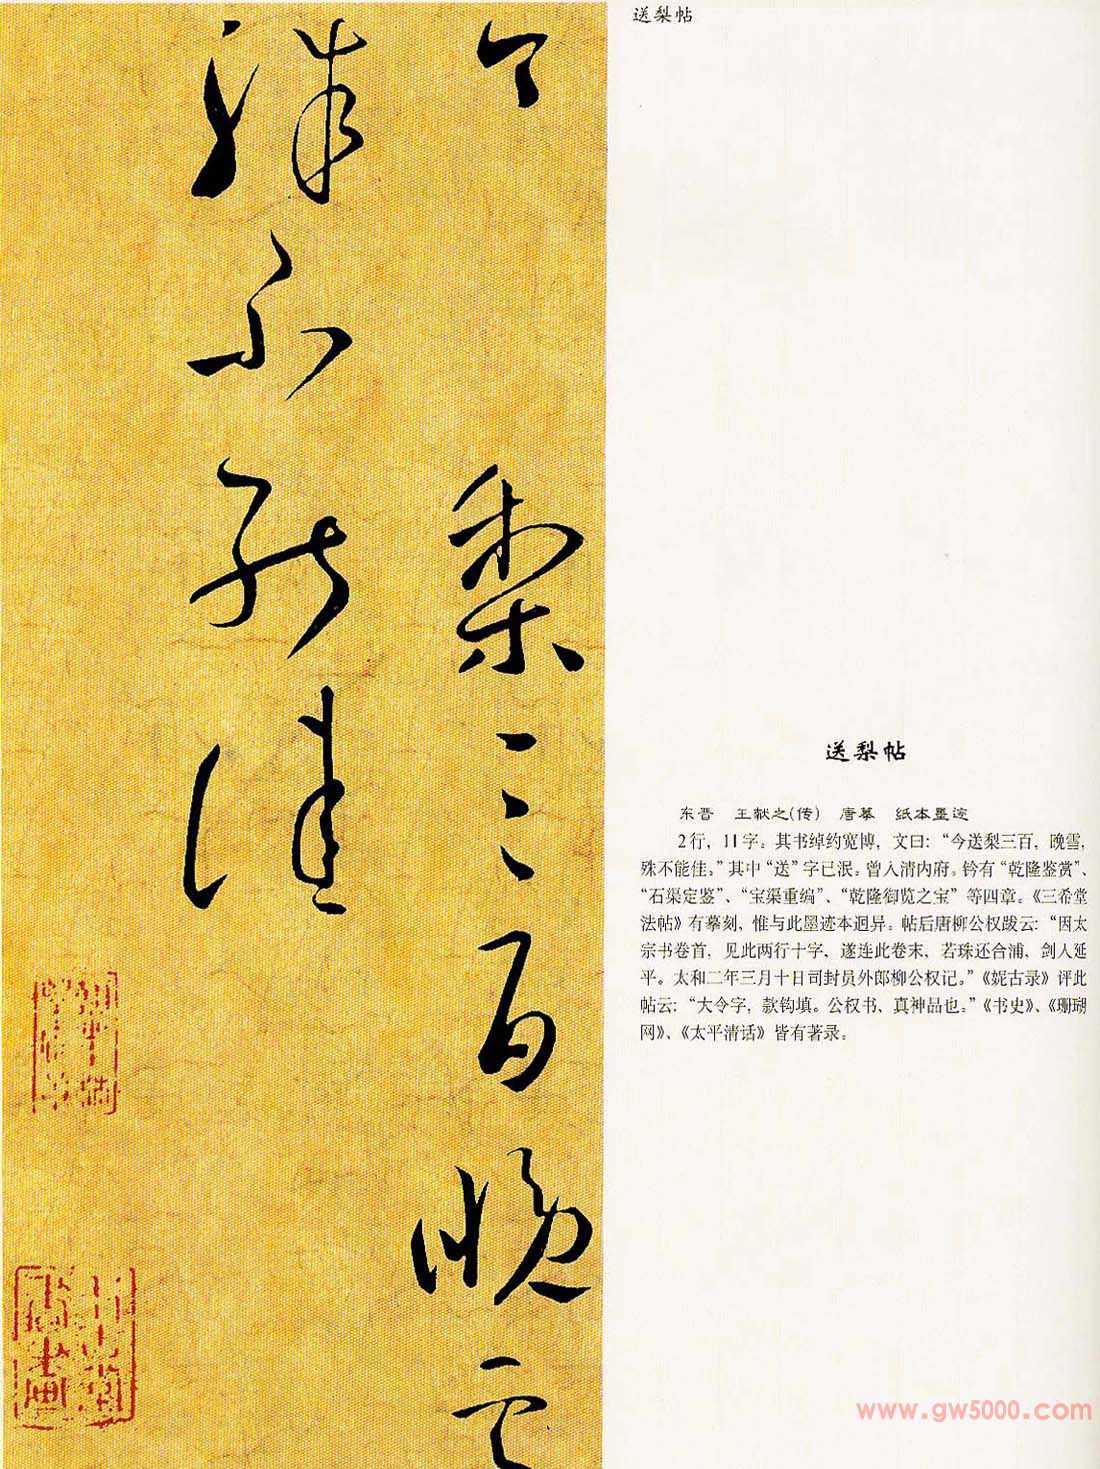 送梨帖
今梨三百晚雪
殊不能佳
送梨帖
东晋　王献之(传)　唐摹　纸本墨迹
2行，11字。其书绰约宽博，文曰：“今送梨三百，晚雪，
殊不能佳。”其中“送”字已泯。曾入清内府。钤有“乾隆鉴赏”、
“石渠定鉴”、“宝渠重编”、“乾隆御览之宝”等四章。《三希堂
法帖》有摹刻，惟与此墨迹本迥异。帖后唐柳公权跋云：“因太
宗书卷首，见此两行十字、遂连此卷末，若珠还合浦，剑入延
平。太和二年三月十日司封员外郎柳公权记。”《妮古录》评此
帖云：“大令字，款钩填。公权书、真神品也。”《书史》、《珊瑚
网》、《太平清话》皆有著录。
www.gw5000.com